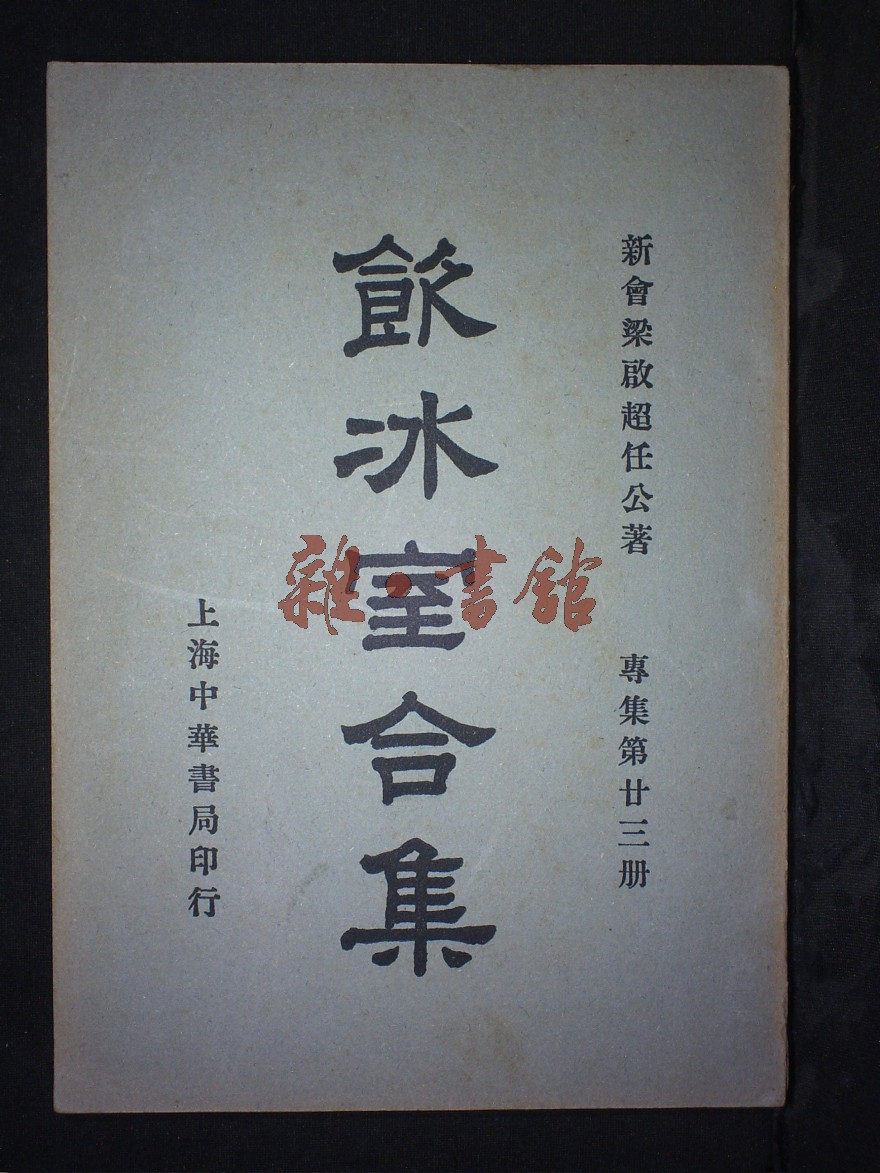 新會梁啟超任公著 專集第廿三册
飲冰室合集
上海中華書局印行
雜·書館